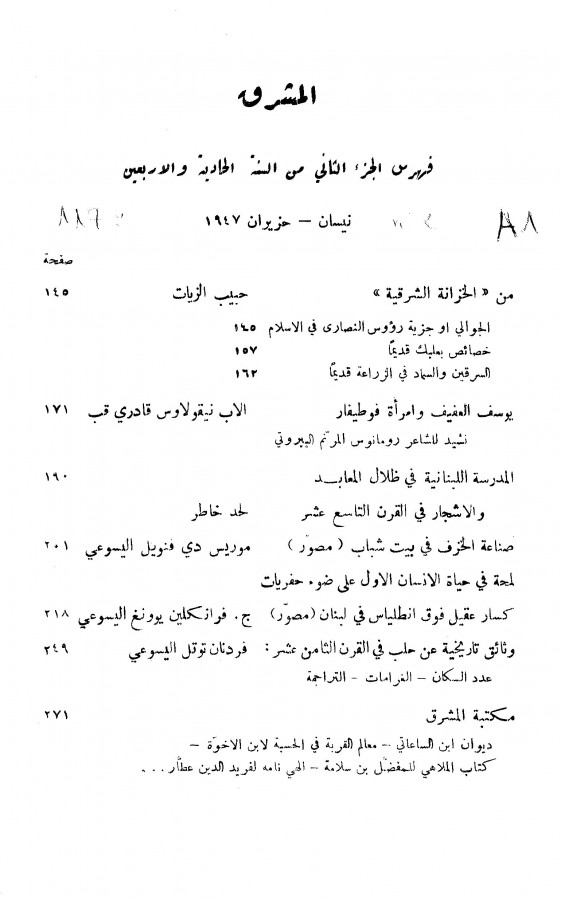 المشرق
فهرس الجزء الثاني من السنة الحادية والاربعين
نيسان – حزيران ١٩٤٧
صفحة
من « الخزانة الشرقية » حبيب الزيات ١٤٥
الجوالي او جزية رؤوس النصارى في الاسلام ١٤٥
خصائص بعلبك قديمًا ١٥٧
السرقين والسماد في الزراعة قديمًا ١٦٢
يوسف العفيف وامرأة فوطيفار الاب نيقولاوس قادري قب ١٧١
نشيد للشاعر رومانوس المرنّم البيروتي
المدرسة اللبنانية في ظلال المعابد ١٩٠
والاشجار في القرن التاسع عشر لحد خاطر
صناعة الخزف في بيت شباب ( مصوّر ) موريس دي فنويل اليسوعي ٢٠١
لمحة في حياة الانسان الاول على ضوء حفريات
كسار عقيل فوق انطلياس في لبنان (مصوّر) ج. فرانكلين يوونغ اليسوعي ٢١٨
وثائق تاريخية عن حلب في القرن الثامن عشر : فردنان توتل اليسوعي ٢٤٩
عدد السكان – الغرامات – التراجمة
مكتبة المشرق ٢٧١
ديوان ابن الساعاتي – معالم القربة في الحسبة لابن الاخوّة –
كتاب الملاهي للمفضّل بن سلامة – الحي نامه لفريد الدين عطّار . . .